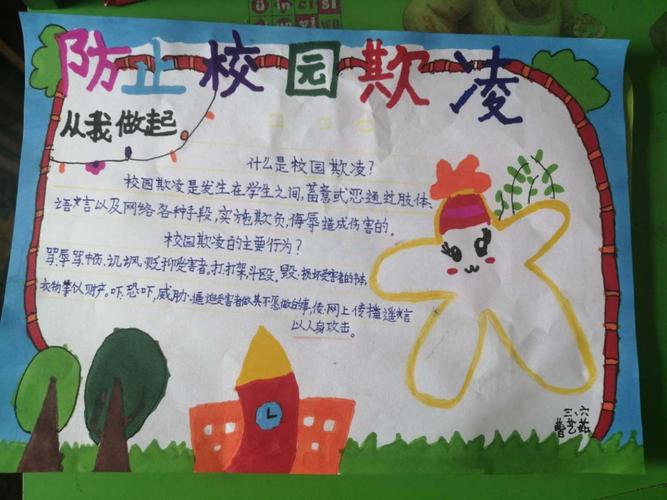 防止校园欺凌
从我做起
什么是校园欺凌?
校园欺凌是发生在学生之间,蓄意或恶通过肢体、
语言以及网络各种手段,实施欺负,侮辱造成伤害的。
校园欺凌的主要行为?
骂:辱骂、讥讽、贬抑受害者,打:打架,斗殴。毁:损坏受害者的书
衣物等似财产。吓:恐吓,威胁:逼迫受害者做其不愿做的事,传:网上传播谣言
以人身攻击。
三、六
曹艺